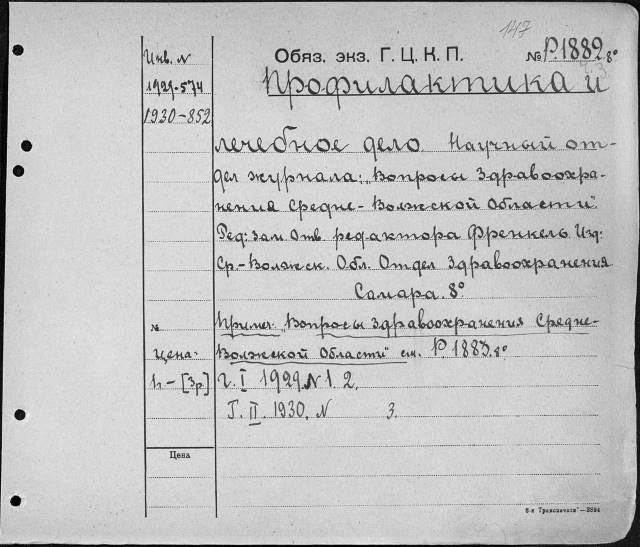 147
Инв. N Обяз. экз. Г. Ц. К. П. № Р.1882.8°
1929-574 Профилактика и
1930-852
лечебное дело. Научный от-
дел журнала: „Вопросы Здравоохра-
нения Средне-Волжской Области".
Ред: зам. отв. редактора Френкель. Изд:
Ср.-Волжск. Обл. Отдел Здравоохранения
Самара. 8°
№ Примеч. „Вопросы Здравоохранения Средне-
цена: Волжской Области" см. Р1883.8°
1 р. — [3р] Г. I 1929. N 1. 2.
Г. II. 1930. N 3.
Цена
6-я Транспечати"—3894